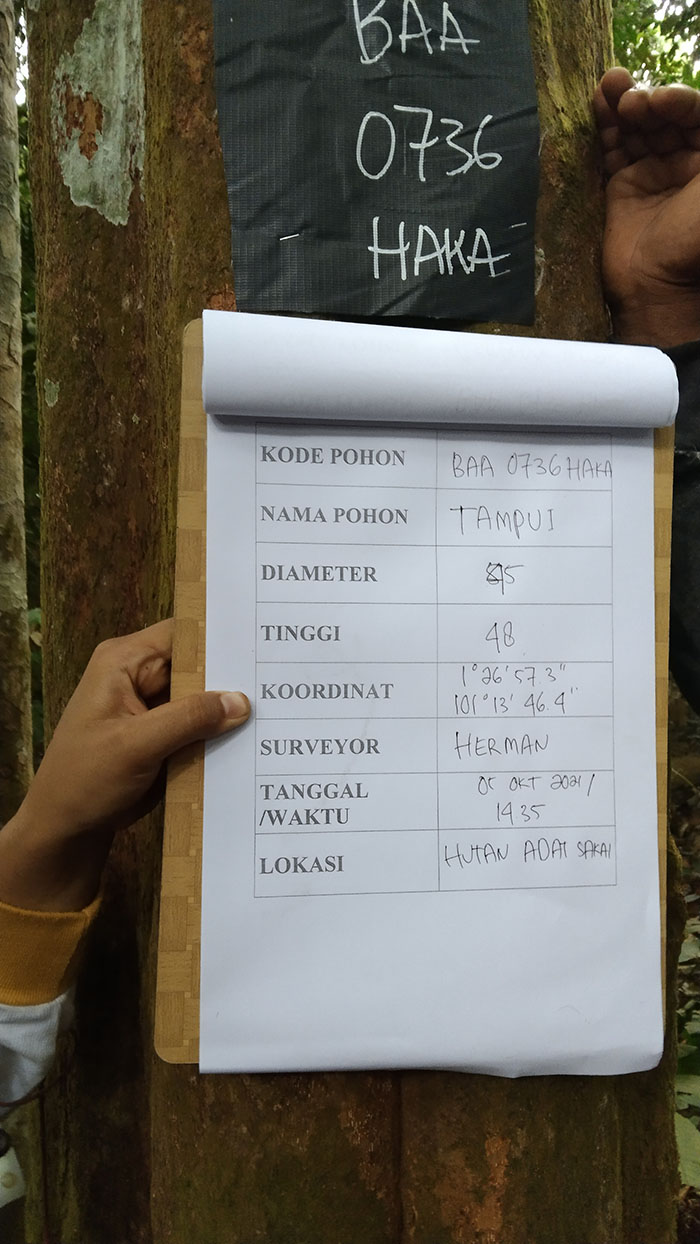 BAA
0736
HAKA
KODE POHON BAA 0736 HAKA
NAMA POHON TAMPUI
DIAMETER
TINGGI 48
KOORDINAT 1°26'57.3"
101°13'46.4"
SURVEYOR HERMAN
TANGGAL 05 OKT 2021 /
/WAKTU 1435
LOKASI HUTAN ADAT SAKAI